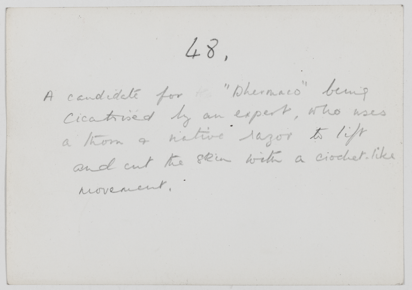 48.
A candidate for "Dhermacs" being
Cicatrised by an expert, who uses
a thorn & native razor to lift
and cut the skin with a crochet-like
movement.